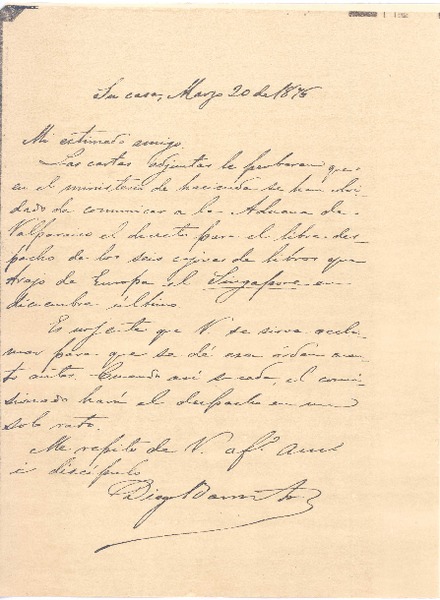 Su casa, Marzo 20 de 1876
Mi estimado amigo
Las cartas adjuntas le probaran que
en el ministerio de hacienda se han olvi-
dado de comunicar a la Aduana de
Valparaiso el decreto para el libre des-
pacho de los seis cajones de libros que
trajo de Europa el Singapore en
diciembre último.
Es urjente que V. se sirva recla-
mar para que se dé esa órden cuan-
to antes. Cuando así suceda, el comi-
sionado hará el despacho en un
solo rato.
Me repito de V. af.º amigo
i discípulo
Diego Barros A.